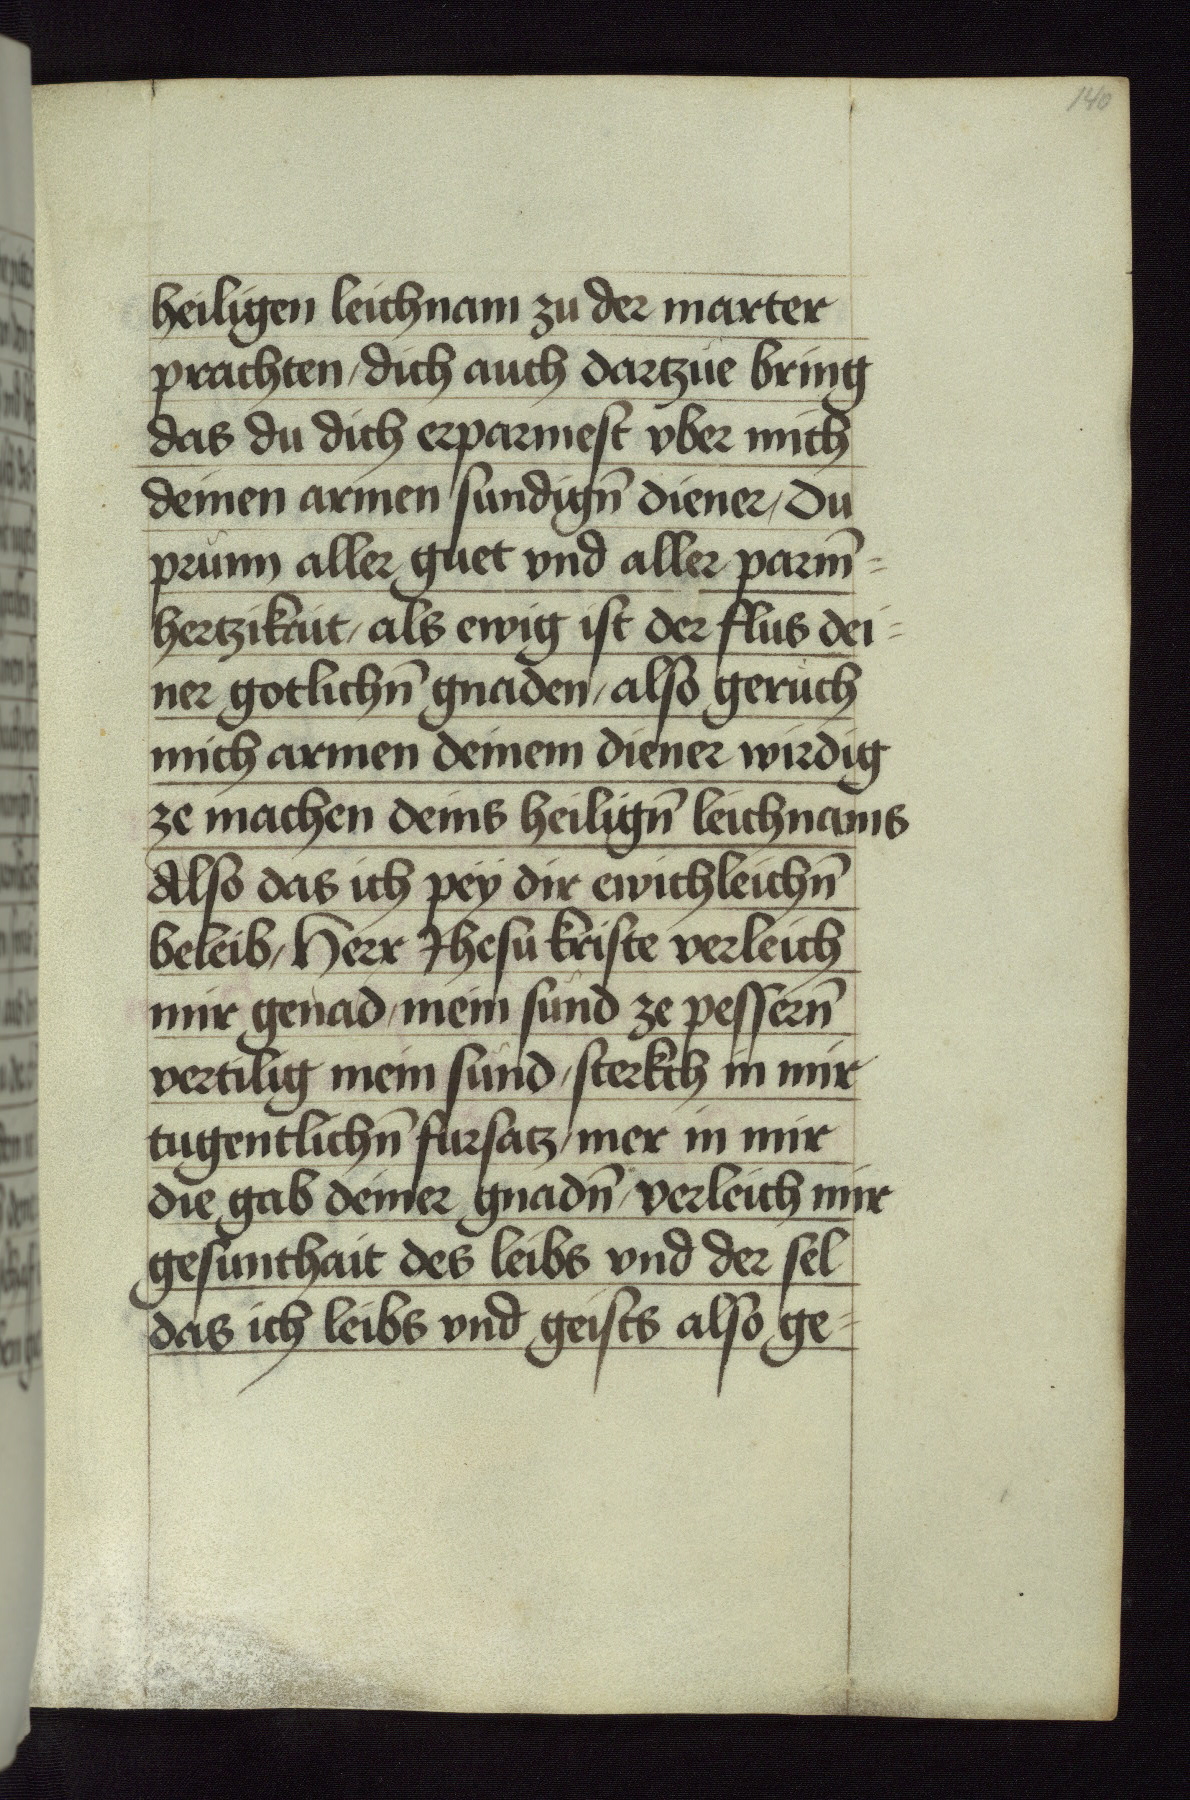 140
heiligen leichnam zu der marter
prachten / dich auch dartzue bring
das du dich erparmest vber mich
deinen armen sundign̄ diener / Du
prunn aller guet vnd aller parm̄=
hertzikait / als ewig ist der flus dei=
ner gotlichn̄ gnaden / also geruch
mich armen deinem diener wirdig
ze machen deins heilign̄ leichnams
Also das ich peÿ dir ewichleichn̄
beleib / Herr Jhesu kriste verleich
mir genad / mein sund ze pessern̄
vertilig mein sund / sterkch in mir
tugentlichn̄ fursatz / mer in mir
die gab deiner gnadn̄ / verleich mir
gesunthait des leibs vnd der sel
das ich leibs vnd geists also ge=